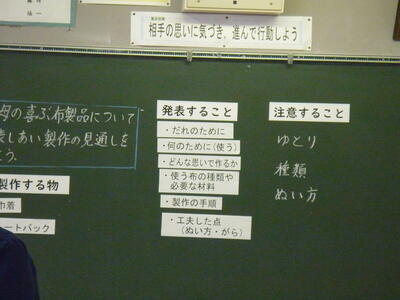 相手の思いに気づき、進んで行動しよう
母の喜ぶ布製品について
表しあい製作の見通しを
う。
製作する物
巾着
ートバック
発表すること
・だれのために
・何のために(使う)
・どんな思いで作るか
・使う布の種類や
必要な材料
・製作の手順
・工夫した点
(ぬい方・がら)
注意すること
ゆとり
種類
ぬい方